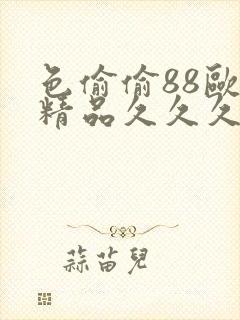 色偷偷88歐
精品久久久
蒜苗兒